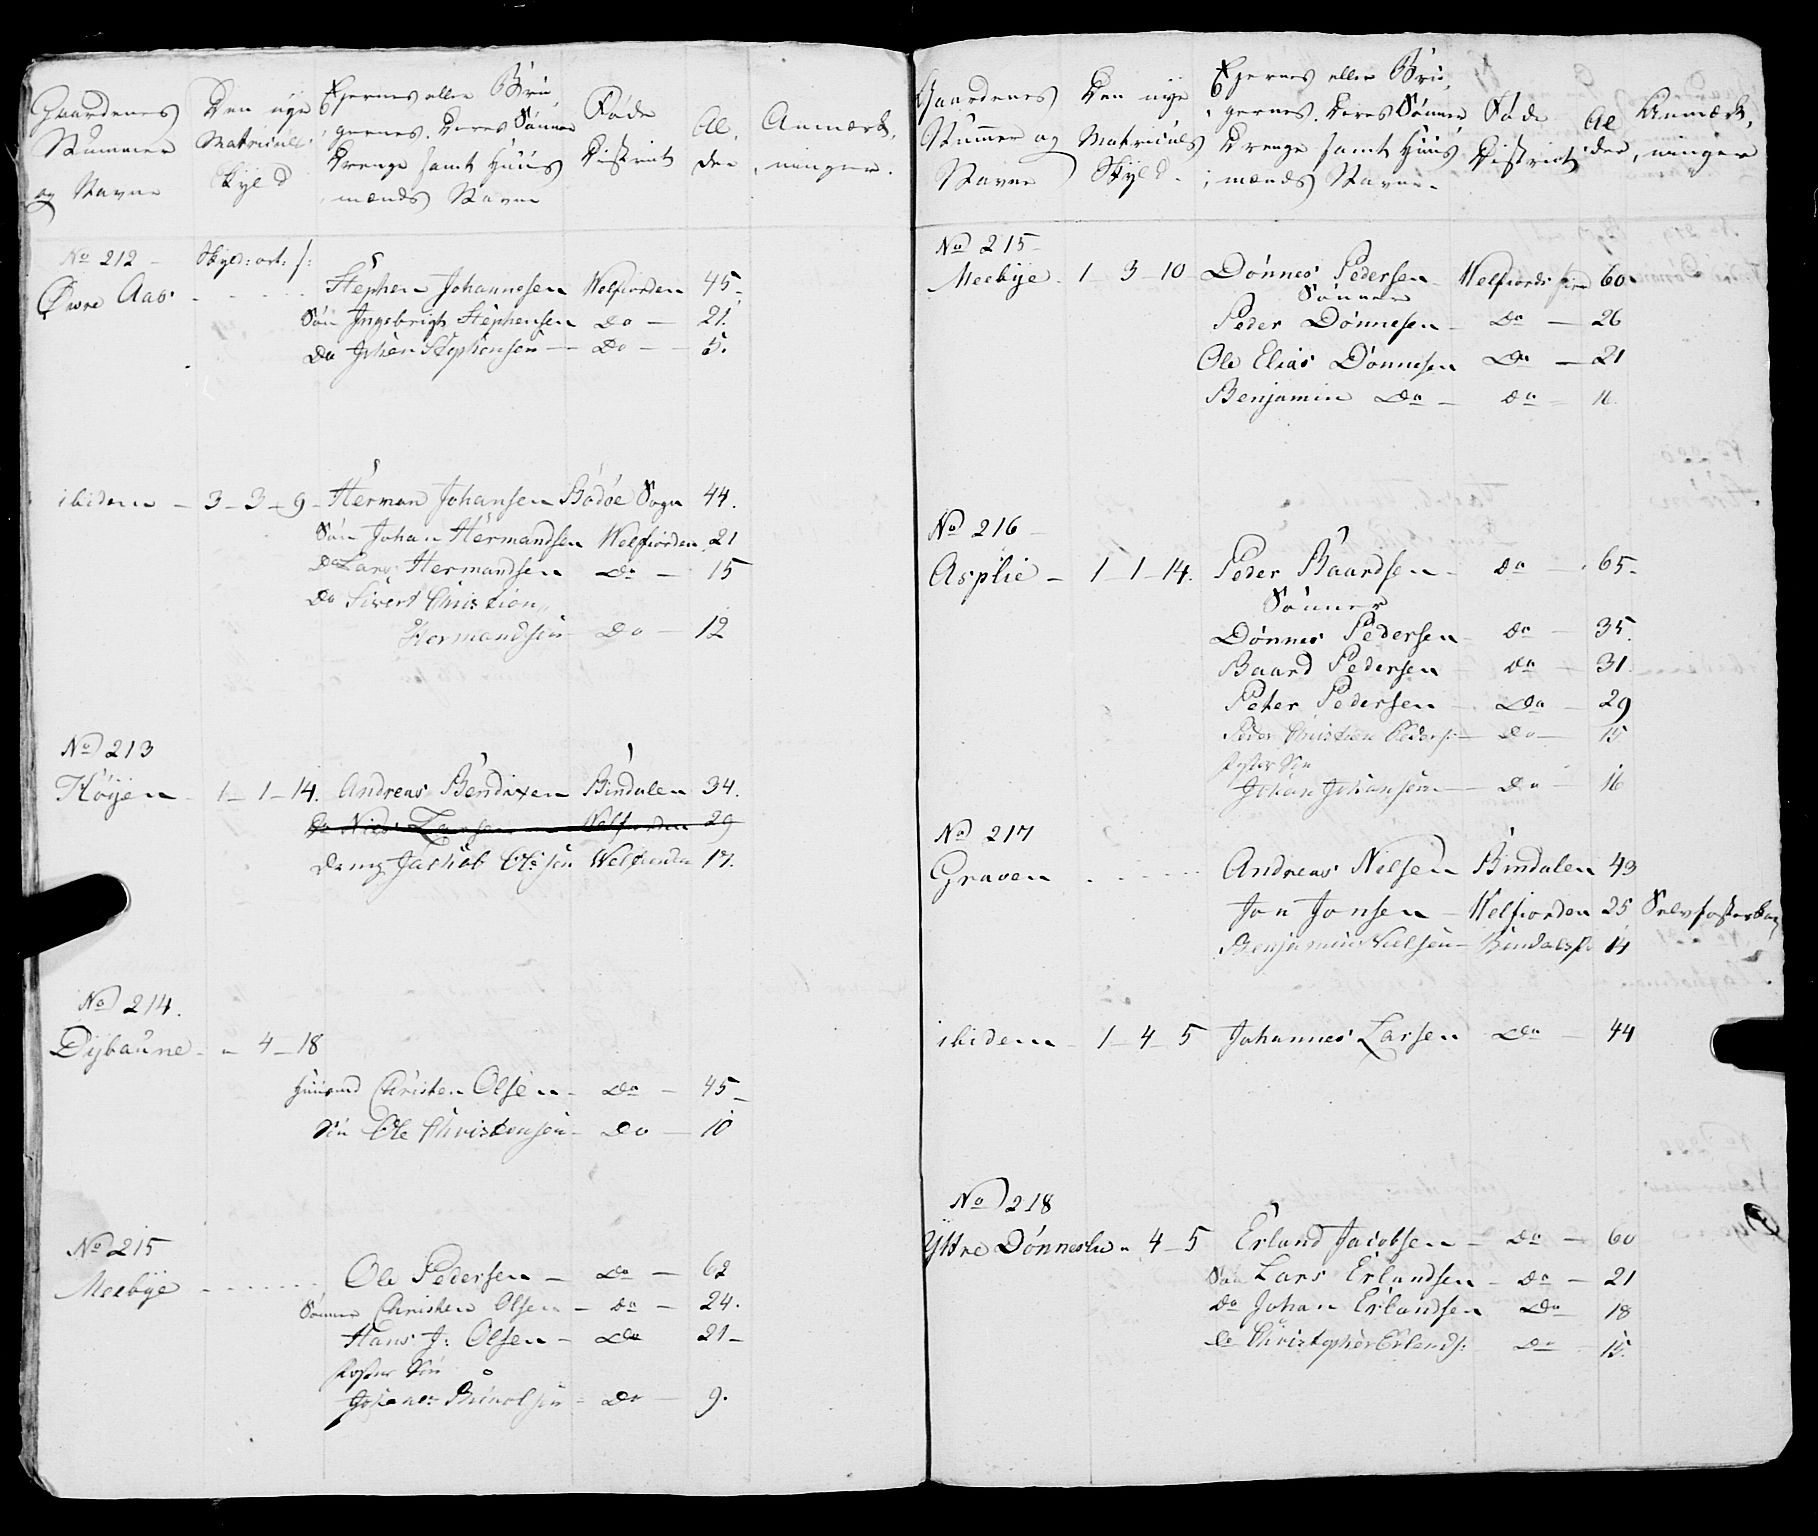 Gaardenes Nummer og Navne
Den nye Matriculs Skyld
Ejernes eller Brugernes, deres Sønner Drenge samt Huusmænds Navne
Føde District
Alder
Anmærkninger.
No 212 - Skyld: ort: s:
Øwre Aas - - - - Stephen Johannesen Welfiorden 45 -
Søn Ingebrigt Stephensen Do - 21.
Do Johan Stephensen - Do - 5.
ibidem - 3 - 3 - 9 - Herman Johansen Bodøe Sogn 44.
Søn Johan Hermandsen Welfiorden 21
Do Lars Hermandsen Do - 15
Do Sivert Christian
Hermandsen Do - 12
No 213
Høyen - 1 - 1 - 14. Andreas Bendixen Bindalen 34.
Do Niels Larsen Welfiorden 29
Dreng Jachob Olesen Welfiorden 17.
No 214.
Dybaune - " 4 - 18
Huusmd Christen Olsen - Do - 45 -
Søn Ole Christensen - Do - 10
No 215
Meebye - - - - - Ole Pedersen - Do - 62
Sønner Christen Olsen - Do - 24.
Hans J: Olsen - Do 21 -
Foster Søn
Do - 9.
Gaardenes Nummer og Navne
Den nye Matriculs Skyld -
Ejernes eller Brugernes, deres Sønner Drenge samt Huusmænds Navne -
Føde District
Alder
Anmærkninger
No 215 -
Meebye - 1 - 3 - 10 Dønnes Pedersen - Welfiords 60
Sønner
Peder Dønnesen - Do - 26
Ole Elias Dønnesen Do - 21
Benjamin Do - Do - 16.
No 216 -
Asplie - 1 - 1 - 14. Peder Baardsen - Do - 65 -
Sønner
Dønnes Pedersen - Do - 35.
Baard Pedersen - Do - 31.
Peter Pedersen - Do - 29
Peder Christian Peders: - Do - 15
Foster Søn
Johan Johansen - Do - 16
No 217
Graven - - - - - Andreas Nilsen Bindalen 43
Jon Jonsen - Welfiorden 25
Benjamin Nielsen - 14
ibidem - 1 - 4 - 5 Johannes Larsen Do - 44
No 218
Yttre Dønneslie " 4 - 5 Erland Jacobsen - Do - 60
Søn Lars Erlandsen - Do - 21
Do Johan Erlandsen Do - 18
Do Christopher Erlands: Do - 15.